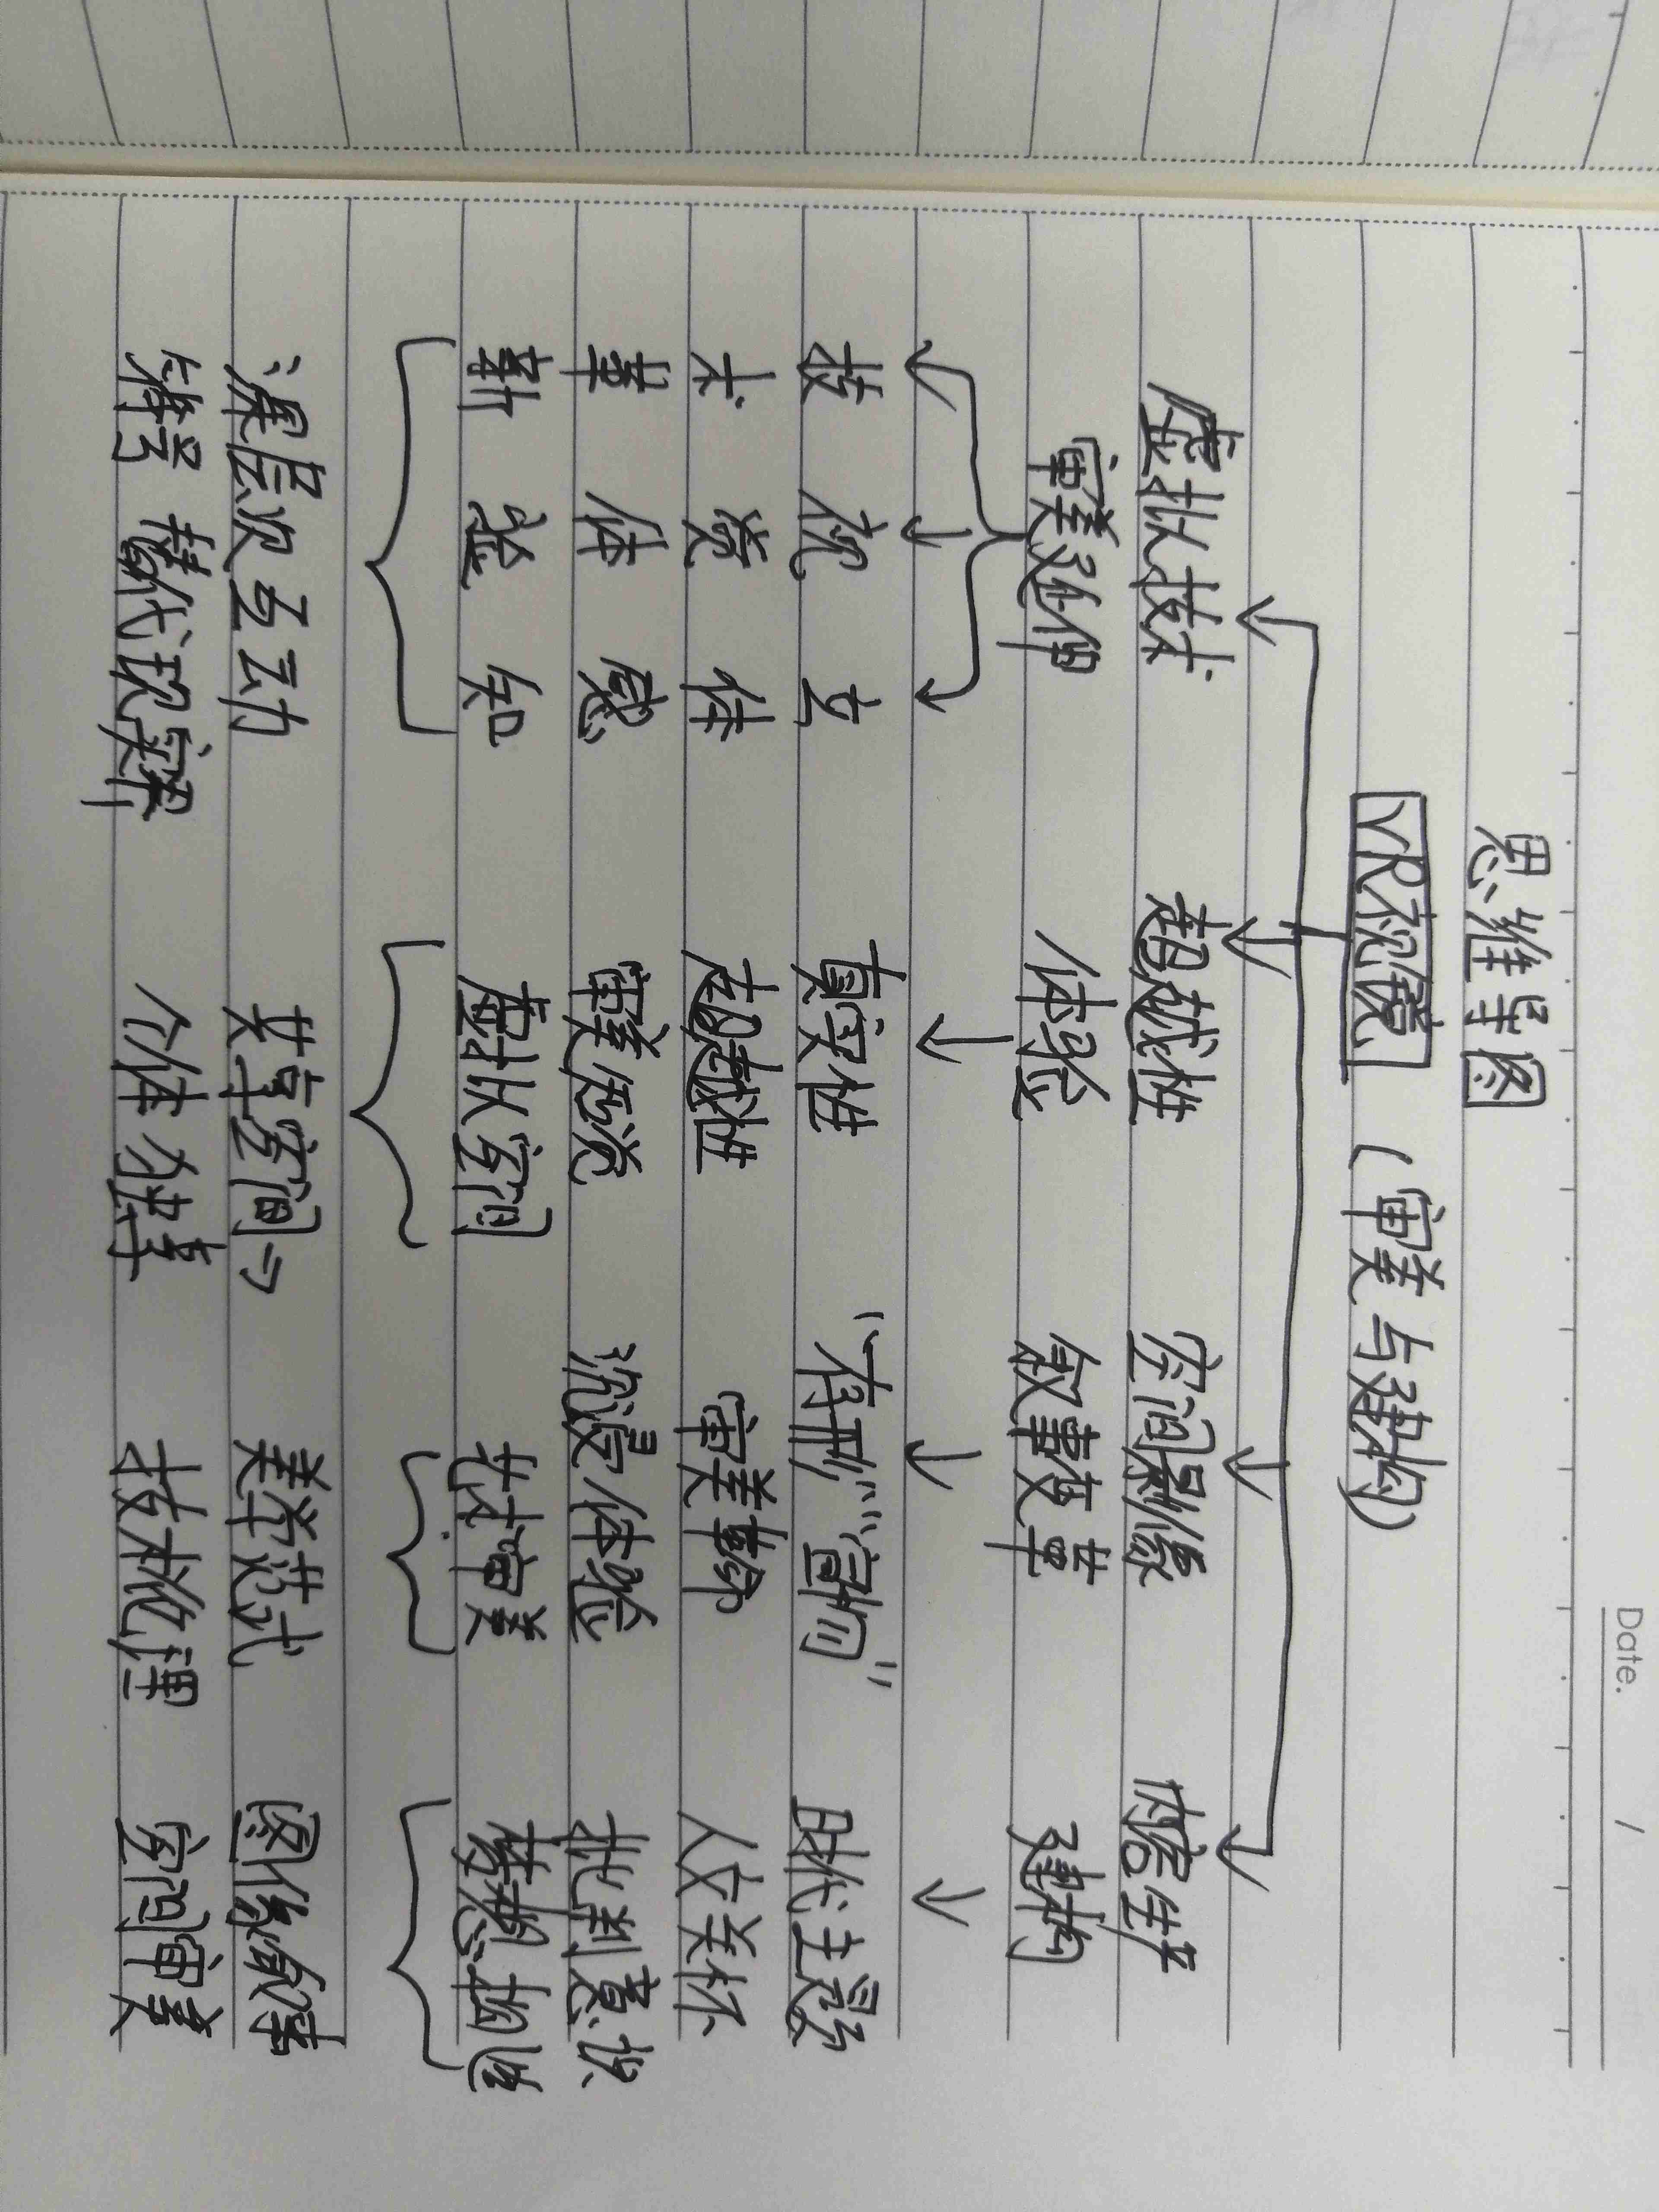 Date. / 
思维导图
VR视镜 (审美与建构)
虚拟技术
审美延伸
技术革新
视觉体验
立体感知
深层次互动
符号替代现实
超越性
体验
真实性
超越性
审美知觉
虚拟空间
共享空间→
个体独享
空间影像
叙事变革
“有形”“窗物”
审美转向
沉浸体验
技术审美
美学范式
技术机理
内容生产
建构
时代主题
人文关怀
批判意识
图像叙事
空间审美